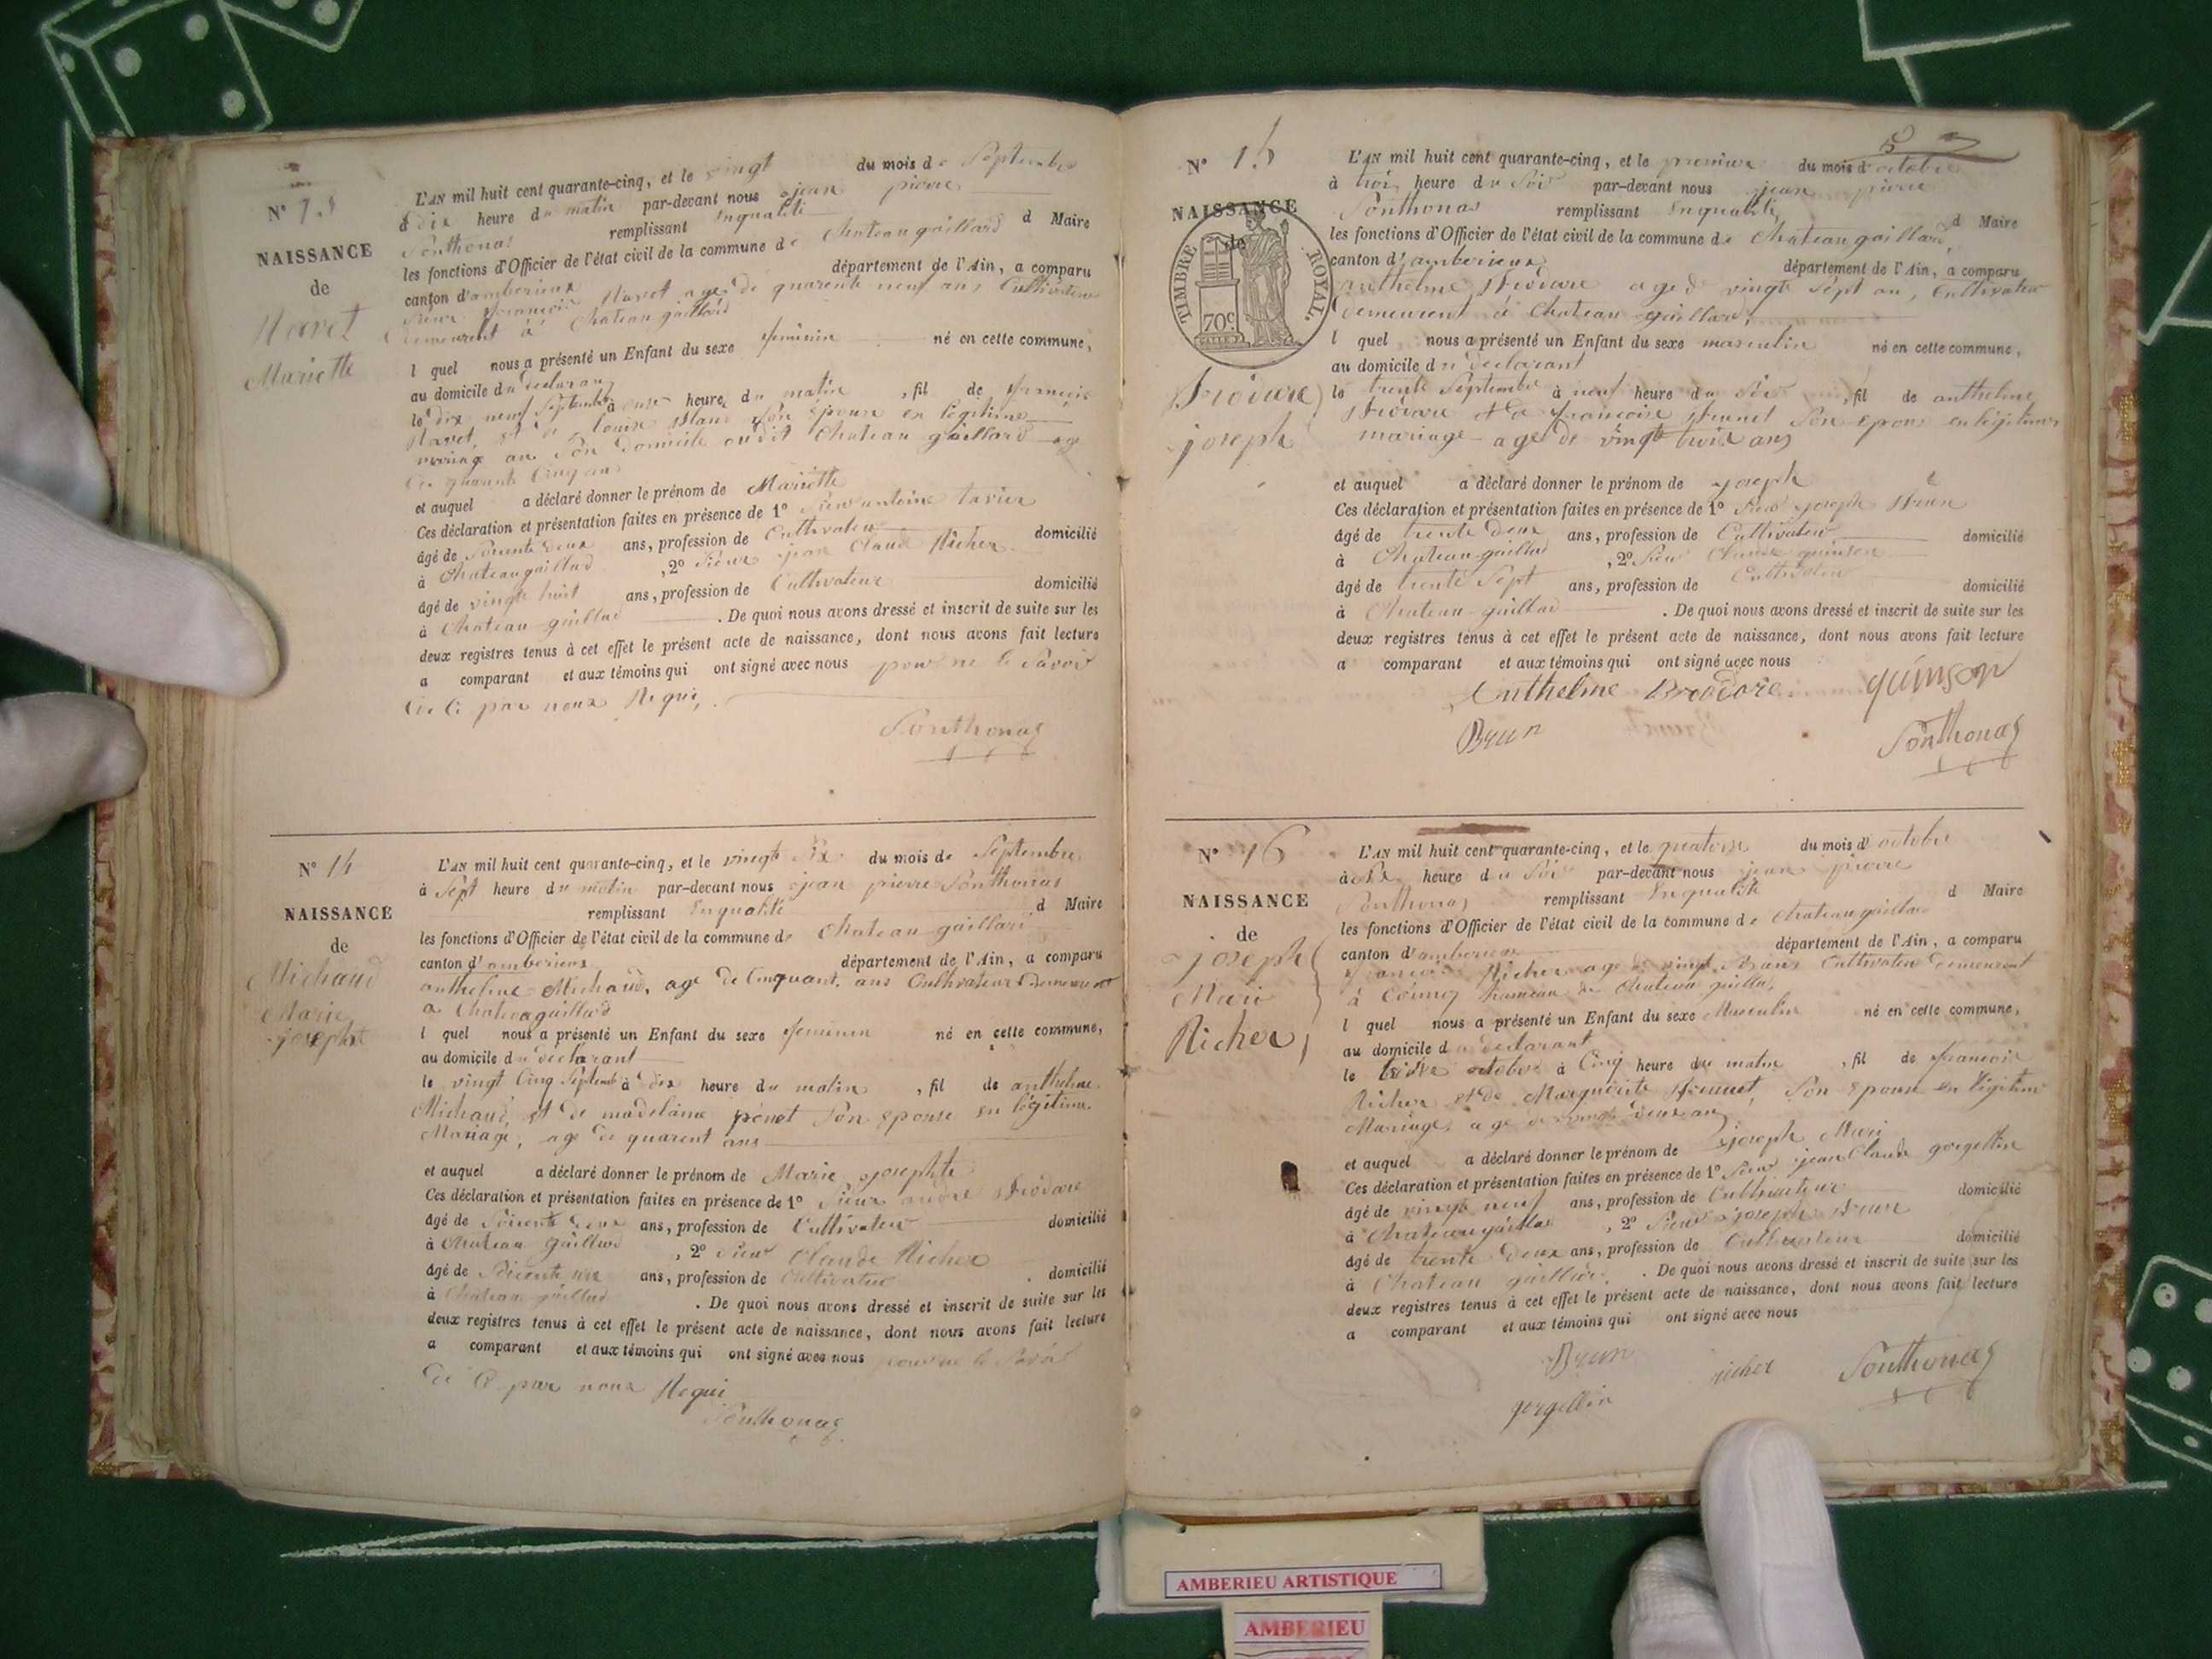 N° 13
NAISSANCE
de
Navet
Mariette
L'AN mil huit cent quarante-cinq, et le vingt du mois de Septembre
à dix heure du matin par-devant nous jean pierre
Ponthonas remplissant Enqualité d Maire
les fonctions d'Officier de l'état civil de la commune de Chateau gaillard
canton d'amberieux département de l'Ain, a comparu
Sieur françois Navet agé de quarente neuf ans Cultivateur
demeurent à Chateau gaillard
l quel nous a présenté un Enfant du sexe feminin né en cette commune,
au domicile du declarant
le dix neuf Septembre à onze heure du matin , fil de françois
Navet, et de louise son épouse en légitime
mariage en Son Domicile audit Chateau gaillard agé
de quarante Cinq ans
et auquel a déclaré donner le prénom de Mariette
Ces déclaration et présentation faites en présence de 1° Sieur antoine tavier
âgé de Soixente deux ans, profession de Cultivateur domicilié
à Chateau gaillard , 2° Sieur jean Claude Richer
âgé de vingt huit ans, profession de Cultivateur domicilié
à Chateau gaillard . De quoi nous avons dressé et inscrit de suite sur les
deux registres tenus à cet effet le présent acte de naissance, dont nous avons fait lecture
a comparant et aux témoins qui ont signé avec nous pour ne le Savoir
de Ce par nous Requi,
Ponthonas
N° 14
NAISSANCE
de
Michaud
Marie
josephte
L'AN mil huit cent quarante-cinq, et le vingt Six du mois de Septembre
à Sept heure du matin par-devant nous jean pierre Ponthonas
remplissant Enqualité d Maire
les fonctions d'Officier de l'état civil de la commune de Chateau gaillard
canton d'amberieux département de l'Ain, a comparu
anthelme Michaud, age de Cinquant. ans Cultivateur Demeurent
a Chateaugaillard
l quel nous a présenté un Enfant du sexe feminin né en cette commune,
au domicile du déclarant
le vingt Cinq Septemb à dix heure du matin , fil de anthelme
Michaud, et de madelaine penet Son eponse en légitime
Mariage, age de quarent ans
et auquel a déclaré donner le prénom de Marie josephte
Ces déclaration et présentation faites en présence de 1° Sieur andre Brodare
âgé de Soixente deux ans, profession de Cultivateur domicilié
à Chateau gaillard , 2° Sieur Claude Richer
âgé de Soixente ans, profession de Cultivateur domicilié
à Chateau gaillard . De quoi nous avons dressé et inscrit de suite sur les
deux registres tenus à cet effet le présent acte de naissance, dont nous avons fait lecture
a comparant et aux témoins qui ont signé avec nous pour ne le Savoir
de Ce par nous Requi
Ponthonas
N° 15
NAISSANCE
de
TIMBRE ROYAL.
70c
Brodare
joseph
L'AN mil huit cent quarante-cinq, et le premier du mois d'octobre
à trois heure du Soir par-devant nous jean pierre
Ponthonas remplissant Enqualité d Maire
les fonctions d'Officier de l'état civil de la commune de Chateau gaillard,
canton d'amberieux département de l'Ain, a comparu
anthelme Brodare age de vingt Sept an, Cultivateur
Demeurent à Chateau gaillard,
l quel nous a présenté un Enfant du sexe masculin né en cette commune,
au domicile du declarant
le trente Septembre à neuf heure du Soir , fil de anthelme
Brodare et de françoise Brunet Son epouse en légitime
mariage age de vingt trois ans
et auquel a déclaré donner le prénom de joseph
Ces déclaration et présentation faites en présence de 1° Sieur joseph Brun
âgé de trente Deux ans, profession de Cultivateur domicilié
à Chateau gaillard , 2° Sieur Claude quinson
âgé de trente Sept ans, profession de Cultivateur domicilié
à Chateau gaillard . De quoi nous avons dressé et inscrit de suite sur les
deux registres tenus à cet effet le présent acte de naissance, dont nous avons fait lecture
a comparant et aux témoins qui ont signé avec nous
Anthelme Brodare quinson
Brun Ponthonas
N° 16
NAISSANCE
de
joseph
Mari
Richer
L'AN mil huit cent quarante-cinq, et le quatorze du mois d'octobre
à Six heure du Soir par-devant nous jean pierre
Ponthonas remplissant Enqualité d Maire
les fonctions d'Officier de l'état civil de la commune de Chateau gaillard
canton d'amberieux département de l'Ain, a comparu
françois Richer age de vingt Six ans Cultivateur demeurent
à hameau de Chateau gaillard,
l quel nous a présenté un Enfant du sexe Masculin né en cette commune,
au domicile du declarant
le treize octobre à Cinq heure du matin , fil de francois
Richer et de Marguerite Brunet, Son epouse en légitime
Mariage, age de vingt deux ans
et auquel a déclaré donner le prénom de joseph Mari
Ces déclaration et présentation faites en présence de 1° Sieur jean Claude gorgellin
âgé de vingt neuf ans, profession de Cultivateur domicilié
à Chateau gaillard , 2° Sieur joseph Brun
âgé de trente Deux ans, profession de Cultivateur domicilié
à Chateau gaillard . De quoi nous avons dressé et inscrit de suite sur les
deux registres tenus à cet effet le présent acte de naissance, dont nous avons fait lecture
a comparant et aux témoins qui ont signé avec nous
Brun richer Ponthonas
gorgellin
AMBERIEU ARTISTIQUE
AMBERIEU